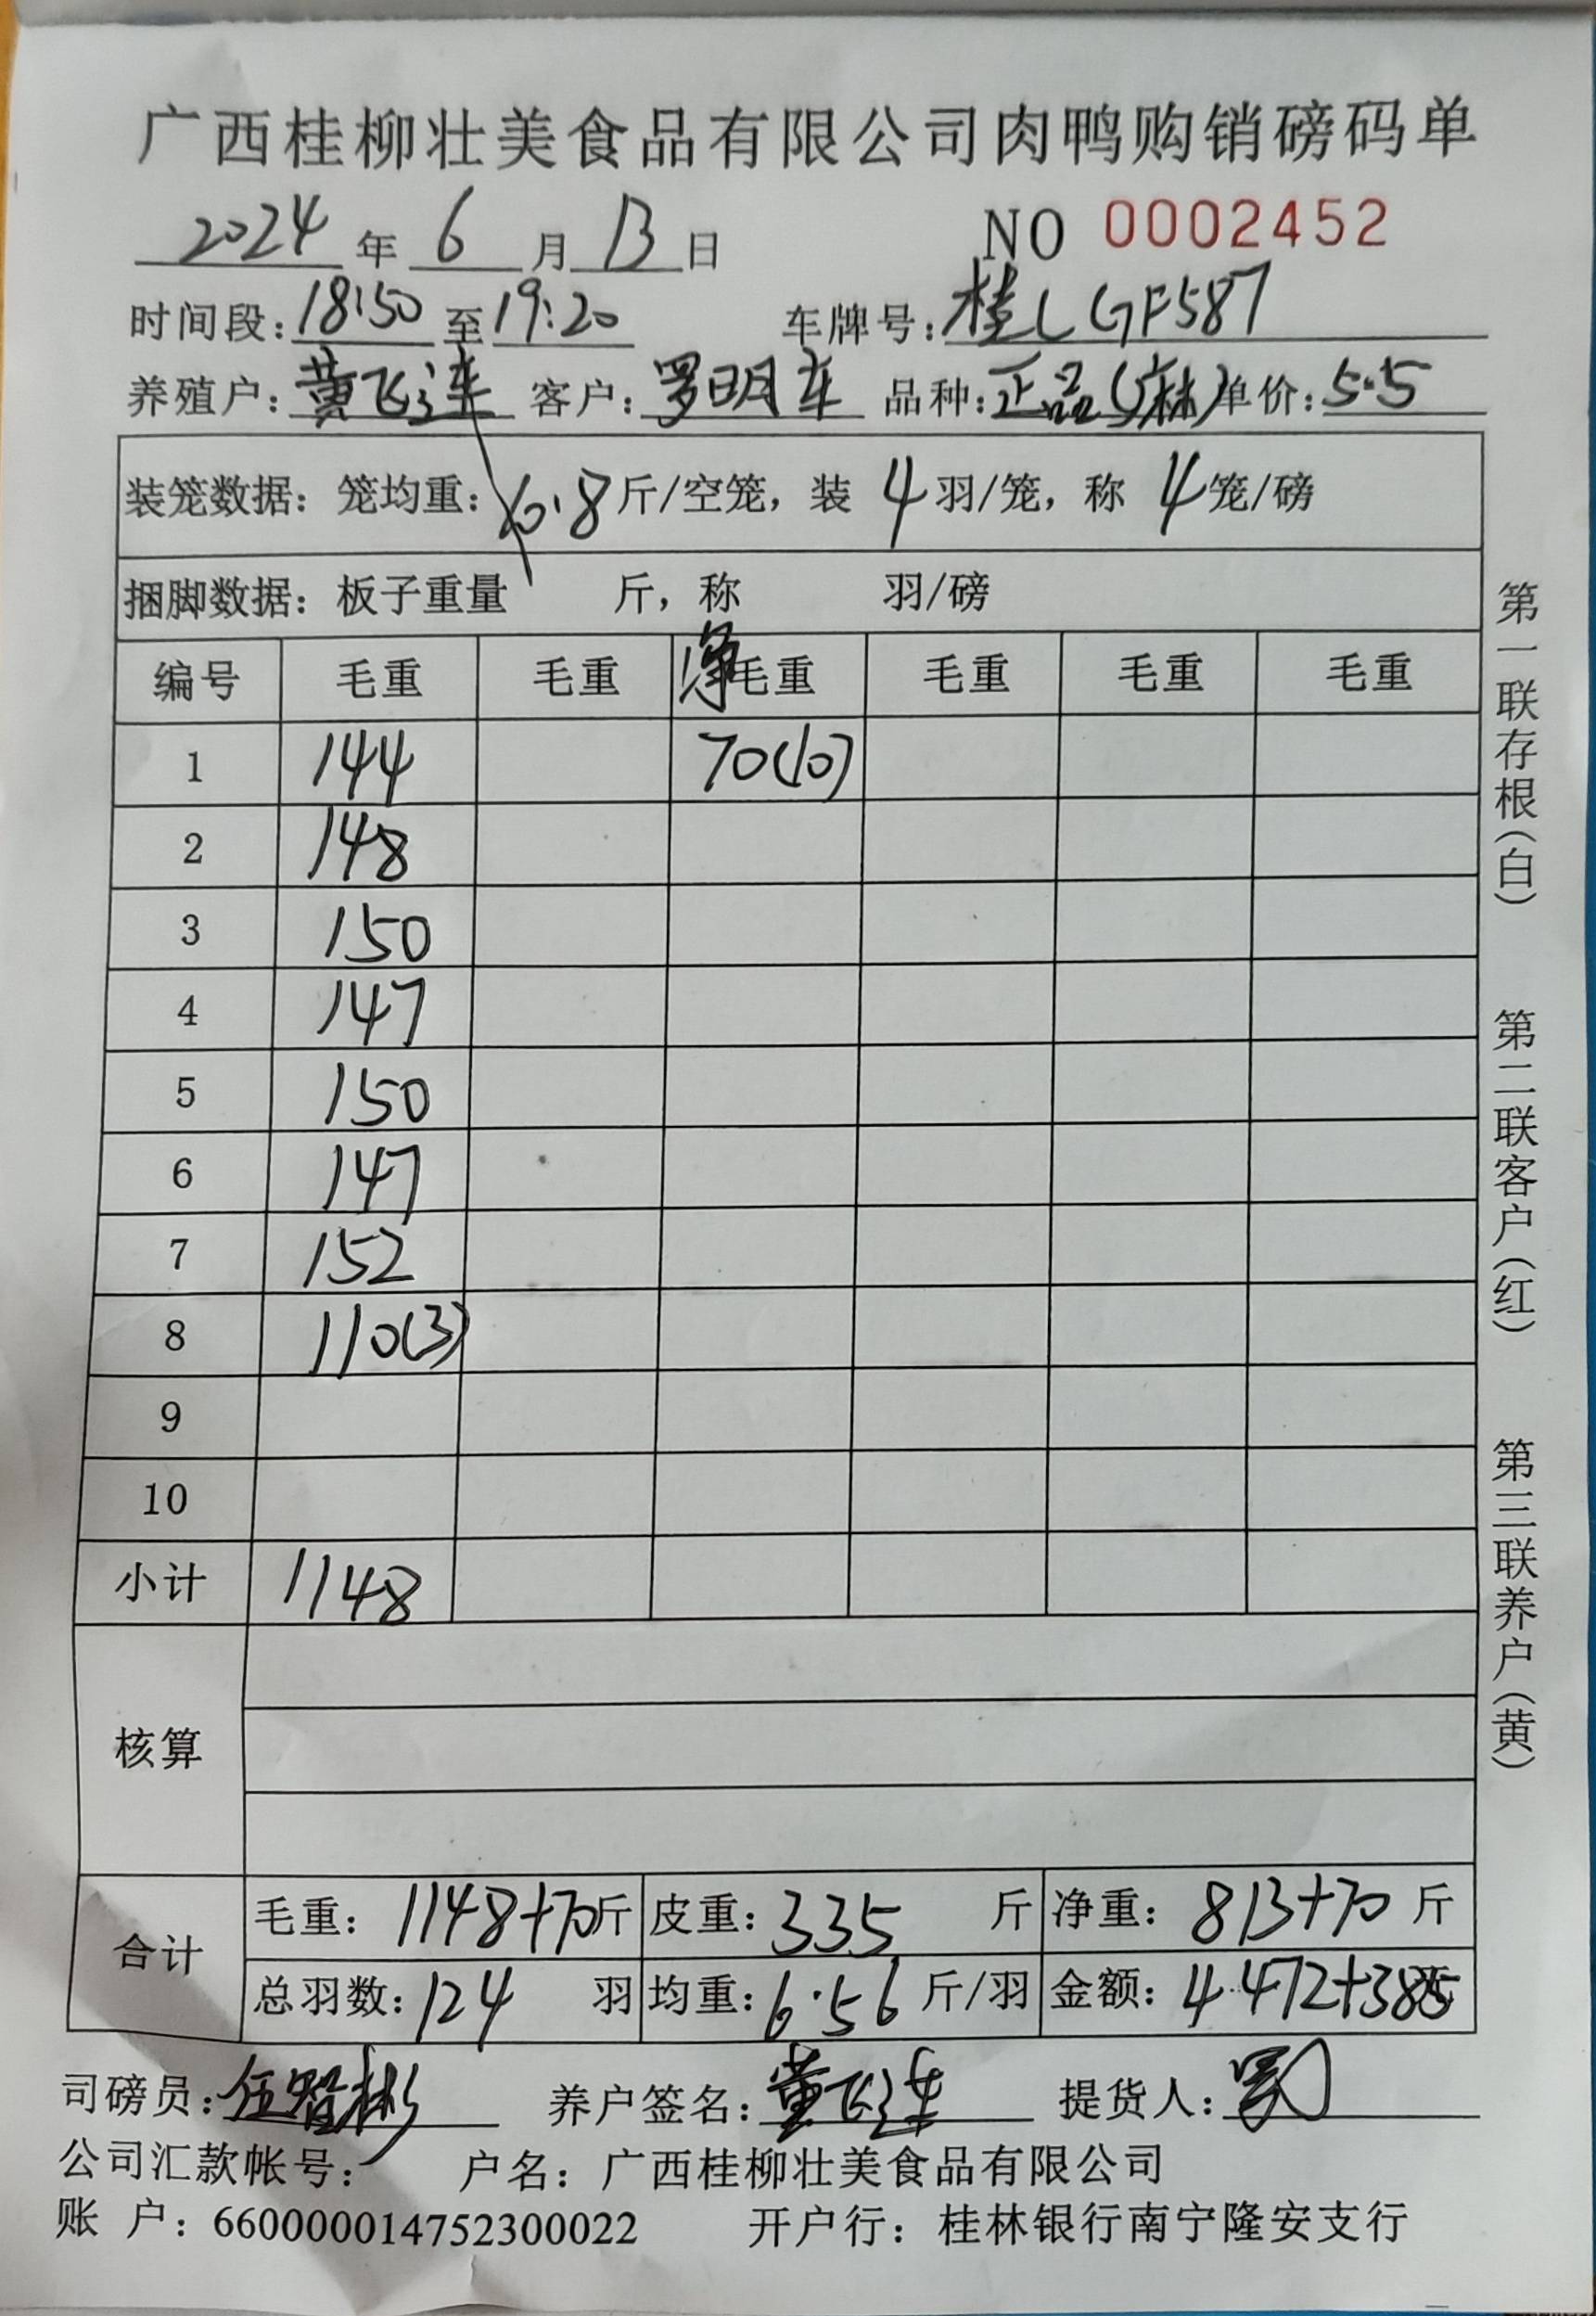 广西桂柳壮美食品有限公司肉鸭购销磅码单
2024年6月13日 NO 0002452
时间段:18:50至19:20 车牌号:桂LGF587
养殖户:黄飞连 客户:罗明车 品种:正品(麻)单价:5.5
装笼数据:笼均重:10.8斤/空笼,装4羽/笼,称4笼/磅
捆脚数据:板子重量 斤,称 羽/磅
编号 毛重 毛重 净毛重 毛重 毛重 毛重
1 144 70(10)
2 148
3 150
4 147
5 150
6 147
7 152
8 110(3)
9
10
小计 1148
核算
合计 毛重:1148+70斤 皮重:335斤 净重:813+70斤
总羽数:124羽 均重:6.56斤/羽 金额:4472+385
司磅员:伍智彬 养户签名:黄飞连 提货人:
公司汇款帐号: 户名:广西桂柳壮美食品有限公司
账 户:660000014752300022 开户行:桂林银行南宁隆安支行
第一联存根(白) 第二联客户(红) 第三联养户(黄)